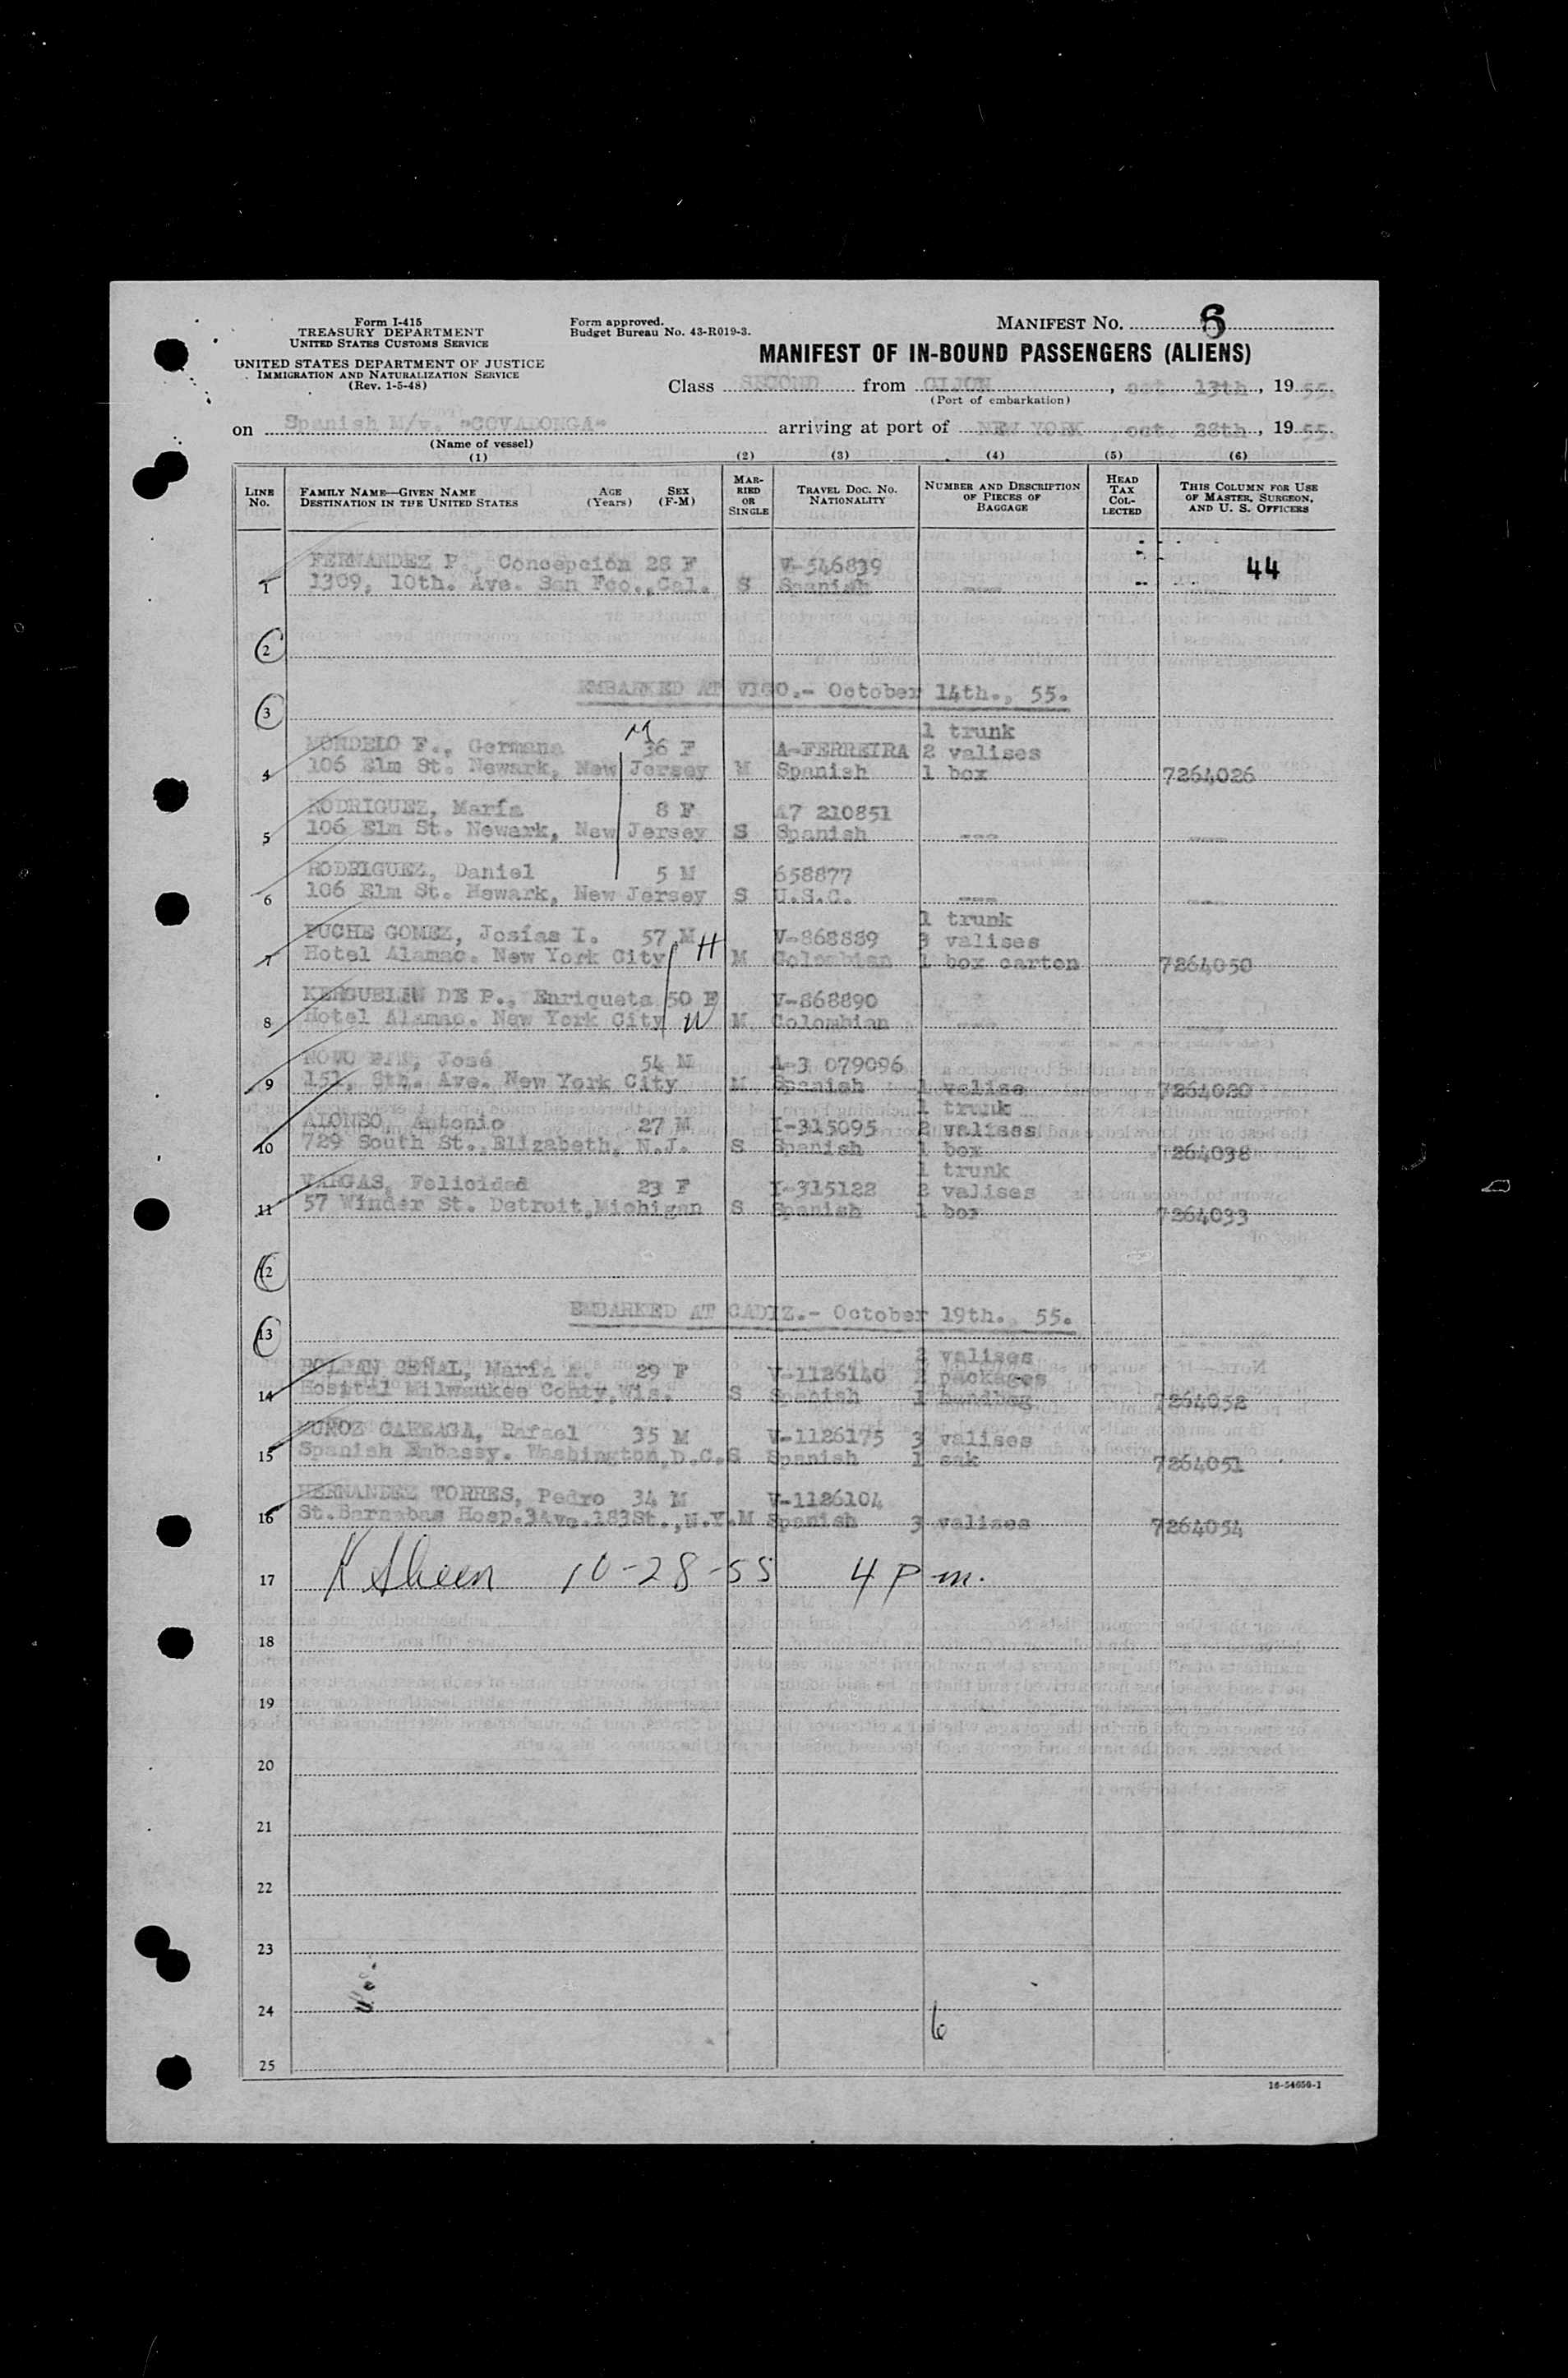 Form I-415
TREASURY DEPARTMENT
UNITED STATES CUSTOMS SERVICE
UNITED STATES DEPARTMENT OF JUSTICE
IMMIGRATION AND NATURALIZATION SERVICE
(Rev. 1-5-48)
Form approved.
Budget Bureau No. 43-R019-3.
MANIFEST No. 6
MANIFEST OF IN-BOUND PASSENGERS (ALIENS)
Class SECOND from GIJON, oct. 13th, 19 55.
(Port of embarkation)
on Spanish M/v. "COVADONGA" arriving at port of NEW YORK, oct. 28th, 19 55.
(Name of vessel)
(1) (2) (3) (4) (5) (6)
LINE No. FAMILY NAME—GIVEN NAME DESTINATION IN THE UNITED STATES AGE (Years) SEX (F-M) MARRIED OR SINGLE TRAVEL DOC. NO. NATIONALITY NUMBER AND DESCRIPTION OF PIECES OF BAGGAGE HEAD TAX COLLECTED THIS COLUMN FOR USE OF MASTER, SURGEON, AND U. S. OFFICERS
FERNANDEZ P., Concepción 28 F V-546839 44
1 1309, 10th. Ave. San Fco., Cal. S Spanish ---
2
EMBARKED AT VIGO.- October 14th., 55.
3
1 trunk
MONDELO F., Germana 36 F M A-FERREIRA 2 valises
4 106 Elm St. Newark, New Jersey M Spanish 1 box 7264026
RODRIGUEZ, María 8 F A7 210851
5 106 Elm St. Newark, New Jersey S Spanish --- ---
RODRIGUEZ, Daniel 5 M 658877
6 106 Elm St. Newark, New Jersey S U.S.C. --- ---
1 trunk
PUCHE GOMEZ, Josías I. 57 M H V-868889 3 valises
7 Hotel Alamac. New York City M Colombian 1 box carton 7264050
DE P., Enriqueta 50 F V-868890
8 Hotel Alamac. New York City W M Colombian --- ---
José 54 M A-3 079096
9 151, Ave. New York City M Spanish 1 valise 7264020
1 trunk
ALONSO, Antonio 27 M I-315095 2 valises
10 729 South St., Elizabeth, N.J. S Spanish 1 box 7264038
1 trunk
VARGAS, Felicidad 23 F I-315122 2 valises
11 57 Winder St. Detroit, Michigan S Spanish 1 box 7264033
12
EMBARKED AT CADIZ.- October 19th., 55.
13
2 valises
CEÑAL, María 29 F V-1126140 2 packages
14 Hospital Milwaukee Conty, Wis. S Spanish 1 handbag 7264052
MUÑOZ GAREAGA, Rafael 35 M V-1126175 3 valises
15 Spanish Embassy. Washington, D.C. S Spanish 1 sak 7264051
HERNANDEZ TORRES, Pedro 34 M V-1126104
16 St. Barnabas Hosp. 3Ave. 183St., N.Y. M Spanish 3 valises 7264054
17 K Sheen 10-28-55 4 P m.
18
19
20
21
22
23
24 6
25
16-54050-1